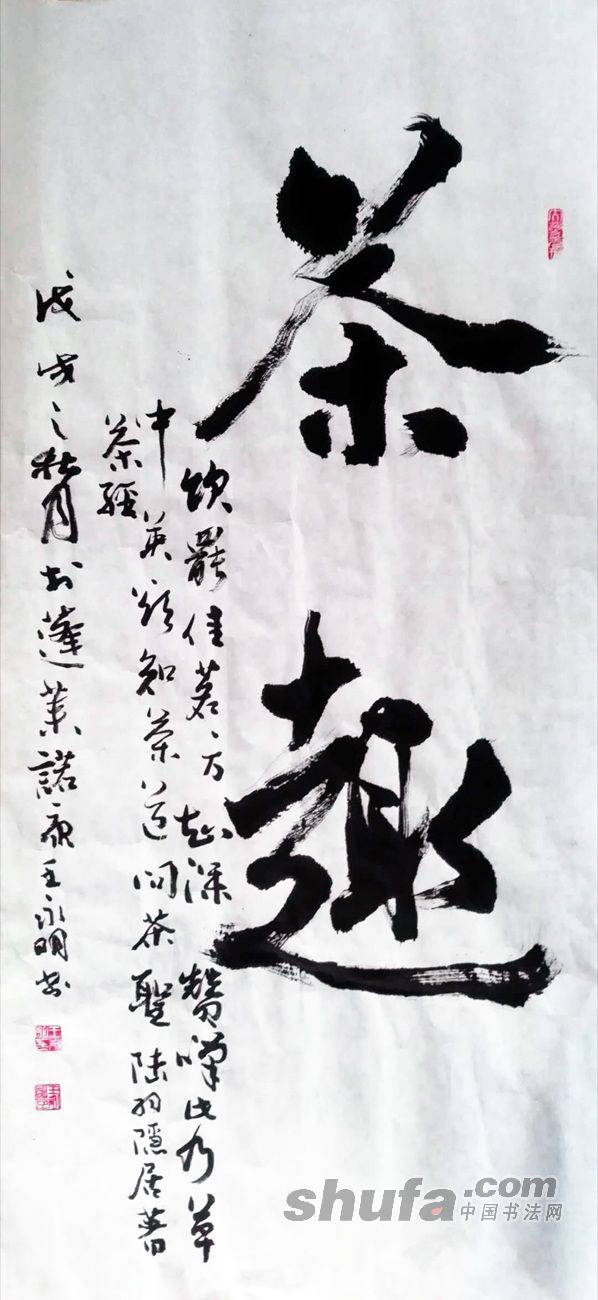 茶趣
饮罢佳茗方知深赞叹此乃草
中英欲知茶道问茶圣陆羽隐居著
茶经
戊戌之秋月於蓬莱诺康王永明书
shufa.com
中国书法网